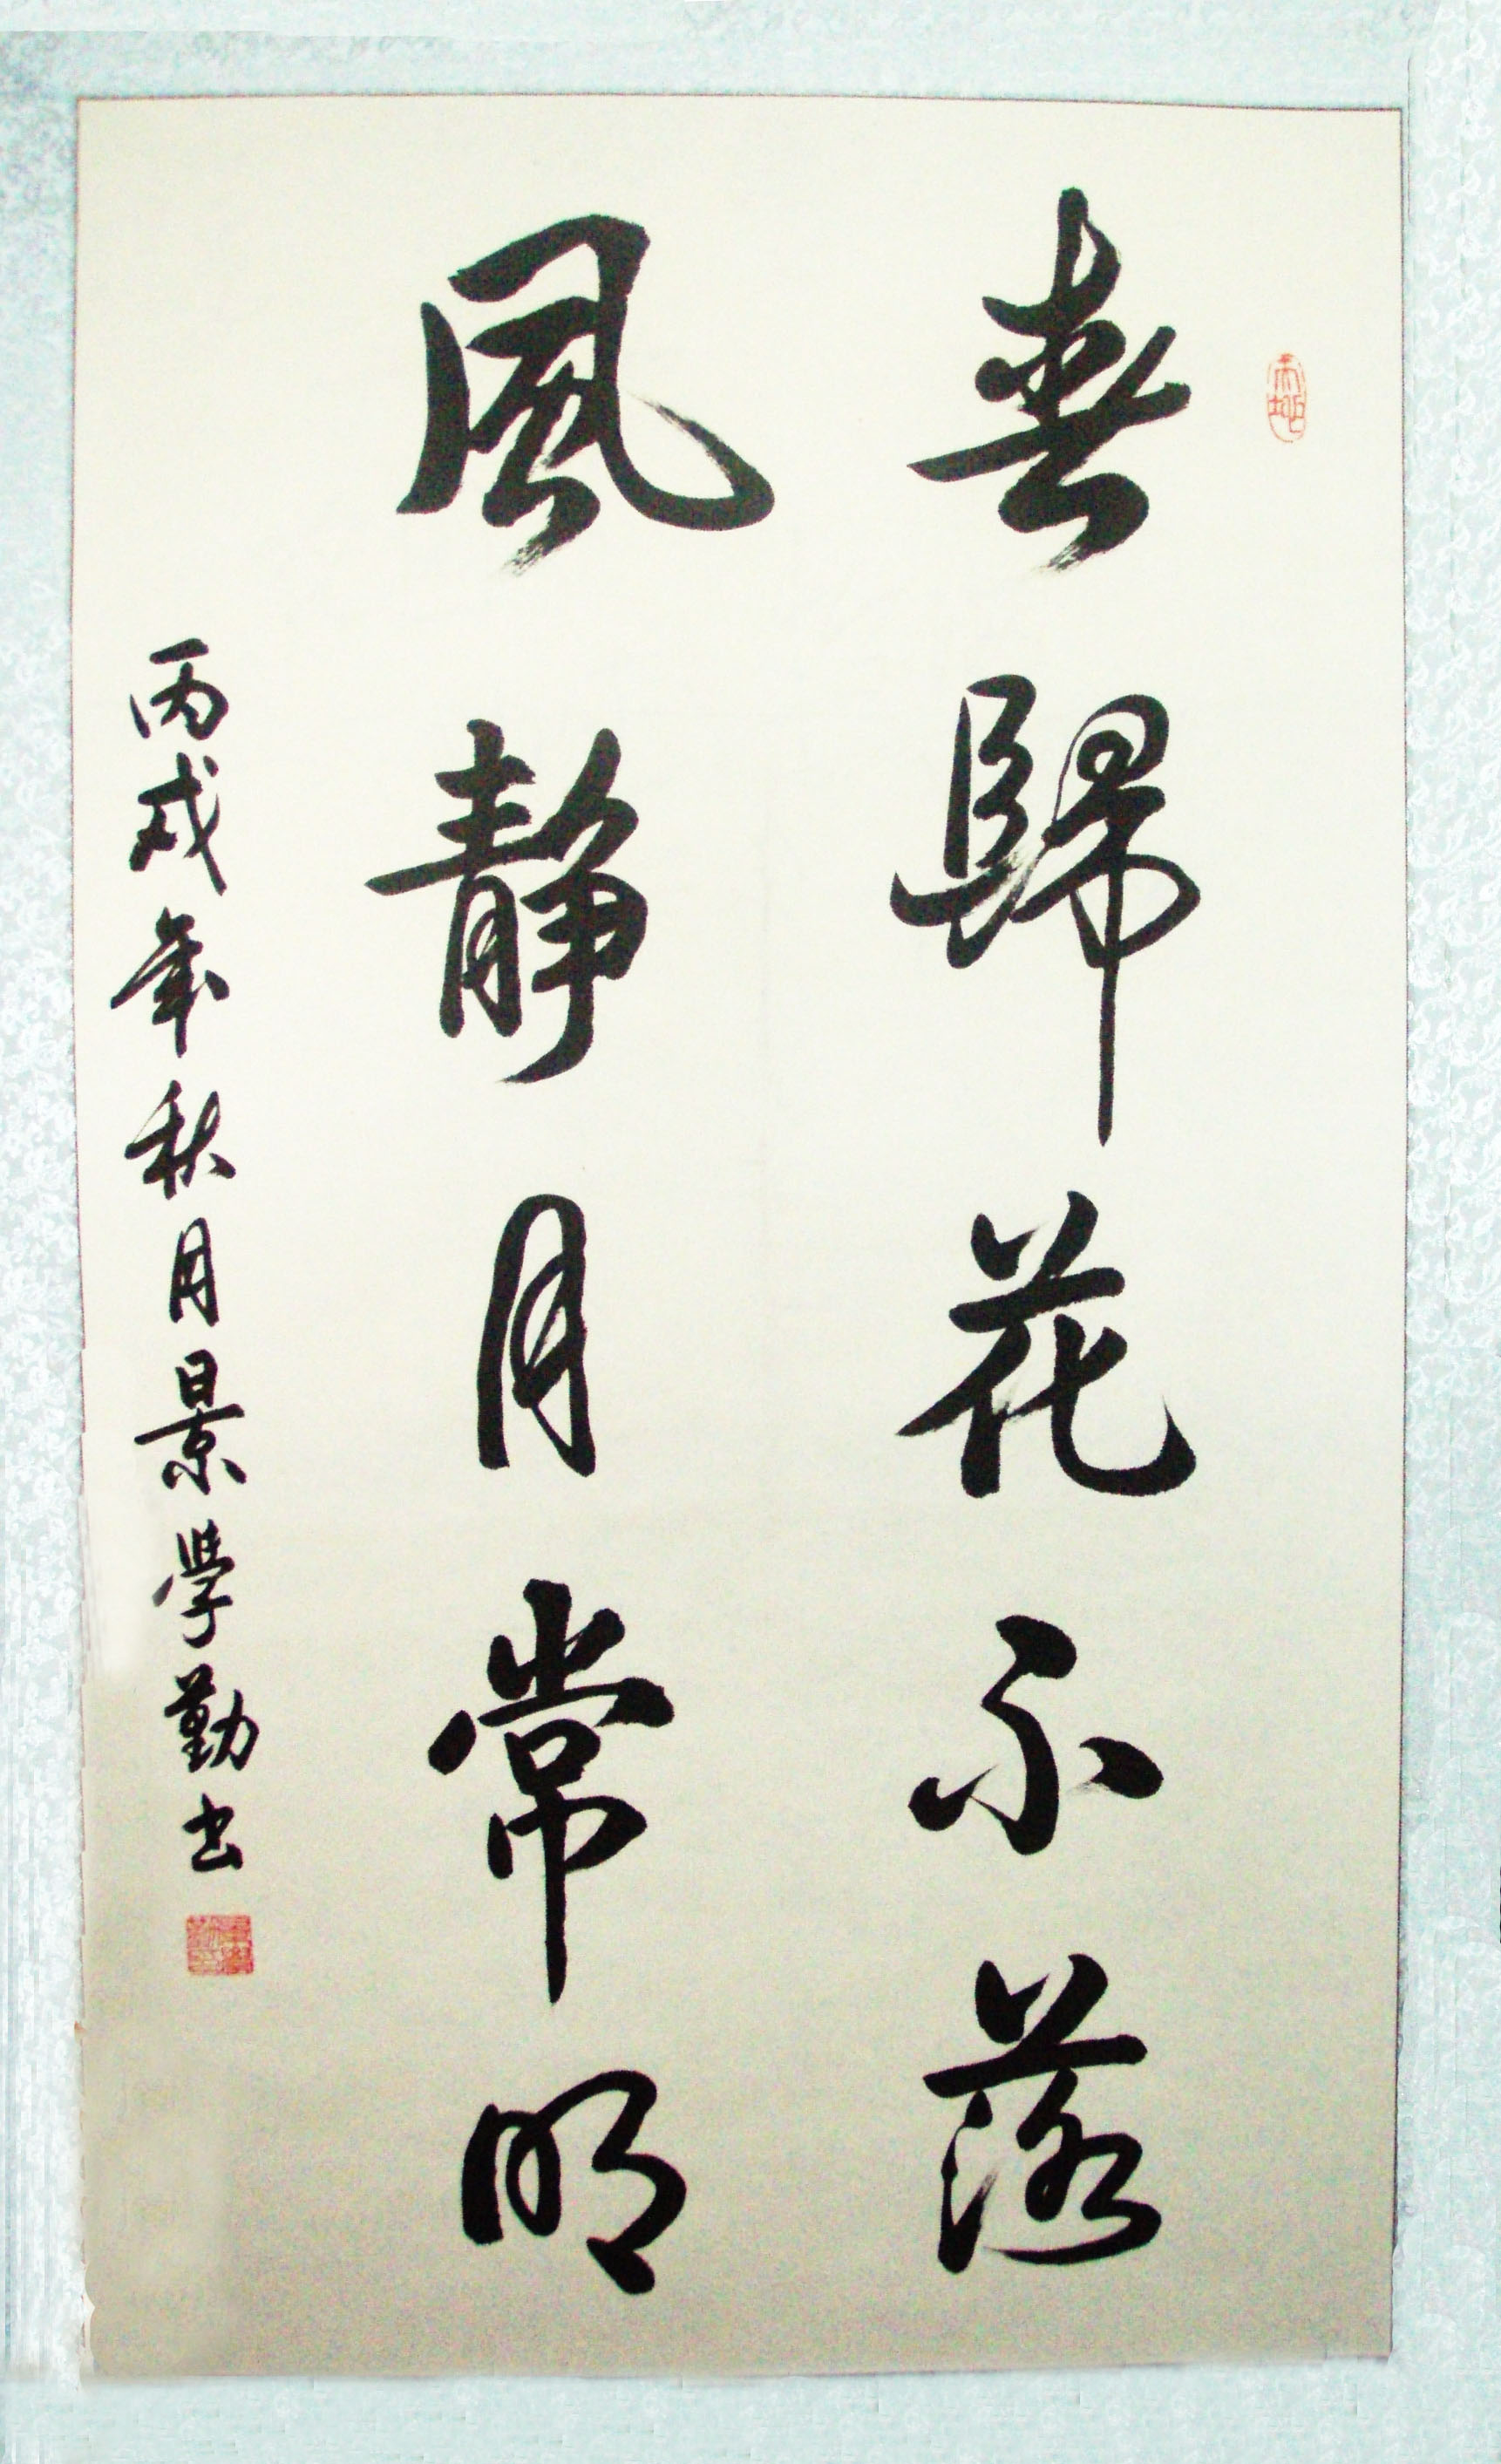 春歸花不落
風靜月常明
丙戌年秋月景學勤书